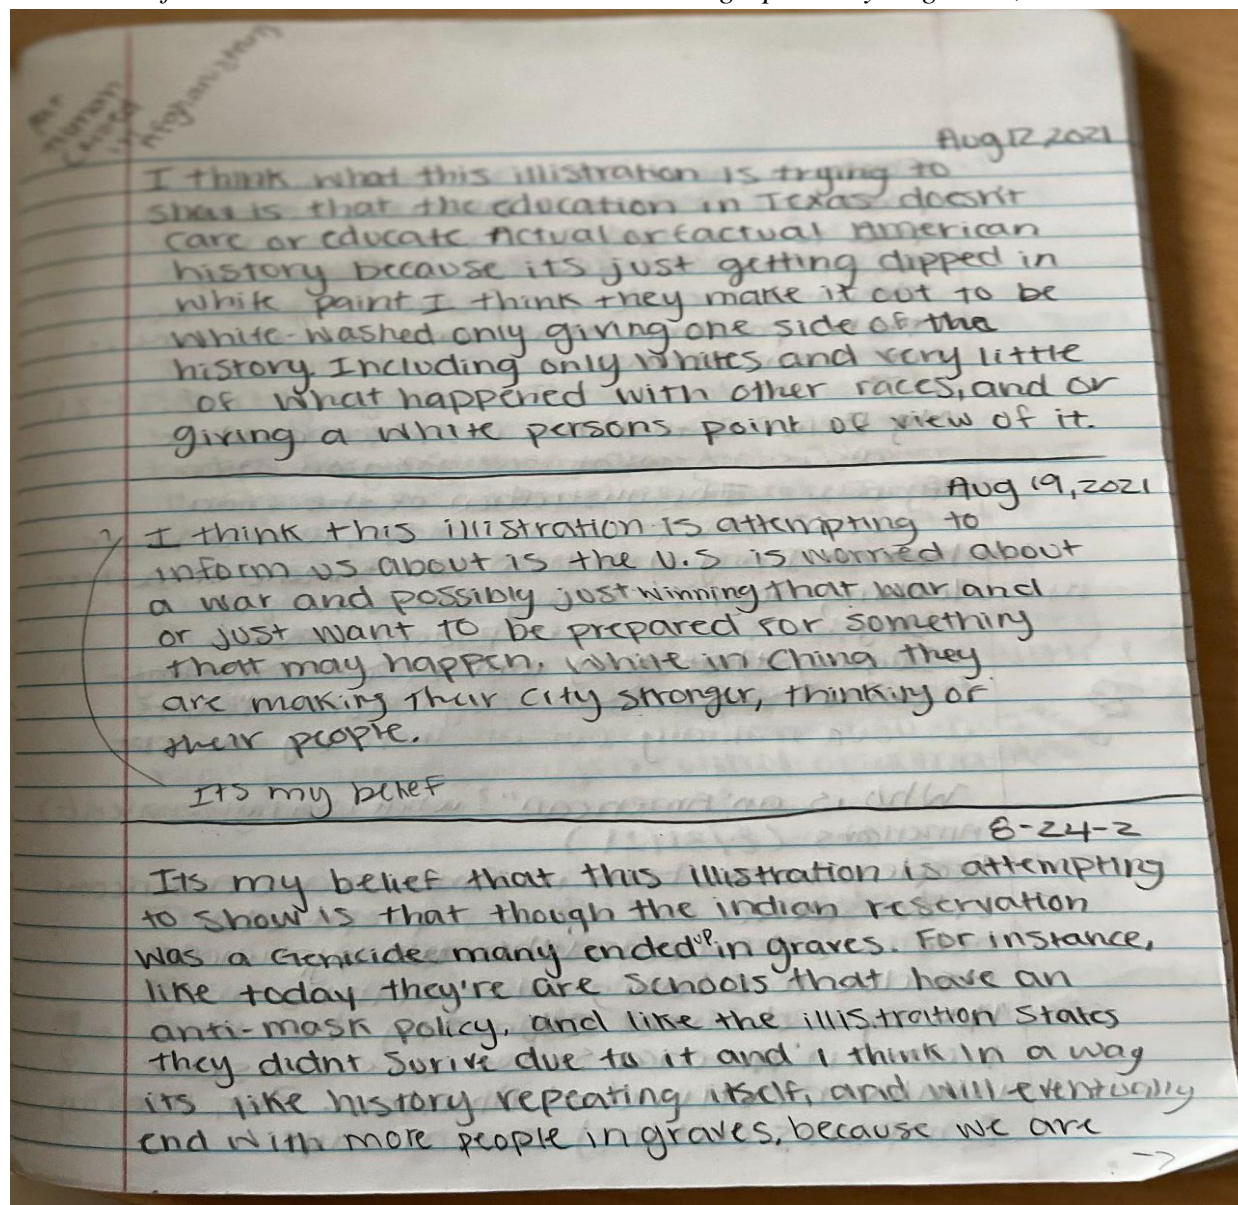 Mr
Human
in Afghanistan
Aug 12, 2021
I think what this illistration is trying to
is that the education in Texas doesn't
care or educate Actual or factual American
history because its just getting dipped in
white paint I think they make it out to be
white-washed only giving one side of the
history. Including only whites and very little
of what happened with other races, and or
giving a white persons point of view of it.
Aug 19, 2021
? I think this illistration is attempting to
inform us about is the U.S is worried about
a war and possibly just winning that war and
or just want to be prepared for something
that may happen. While in China they
are making their city stronger, thinking of
their people.
Its my belief
8-24-2
Its my belief that this illistration is attempting
to show is that though the indian reservation
was a Genicide many ended up in graves. For instance,
like today they're are schools that have an
anti-mask policy, and like the illistration states
they didnt Surive due to it and i think in a way
its like history repeating itself, and will eventually
end with more people in graves, because we are
->